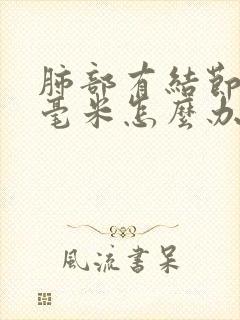 肺部有結節
毫米怎麼办
風流書呆